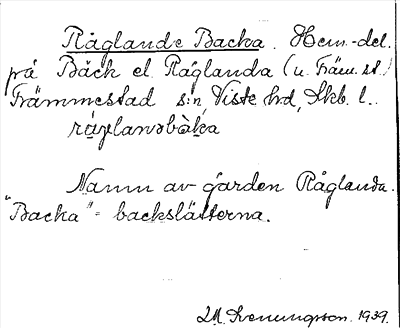 Råglande Backa. Hem.-del.
på Bäck el. Råglanda (u. Främ.st.)
Främmestad s:n, Viste hd, Skb. l.
Namn av gården Råglanda.
"Backa" = backslätterna.
1939.